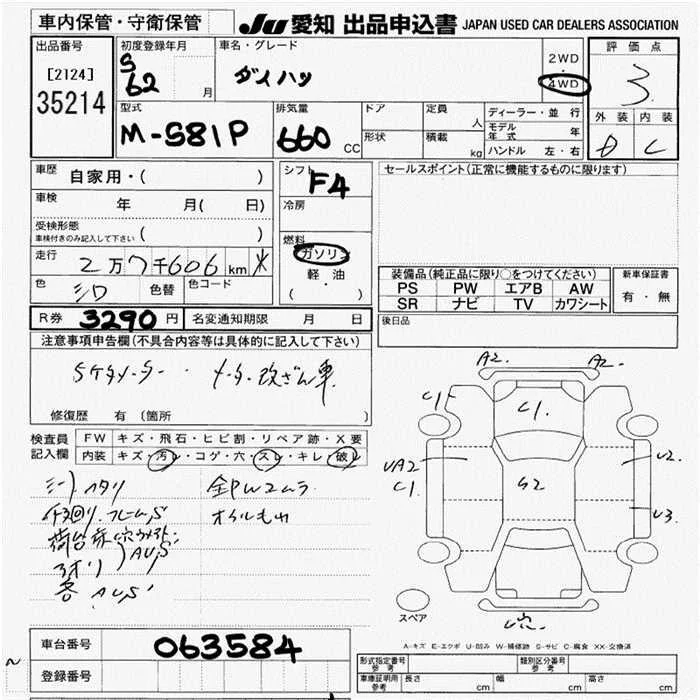 車内保管・守衛保管
JU 愛知 出品申込書 JAPAN USED CAR DEALERS ASSOCIATION
出品番号
[2124]
35214
初度登録年月
S
62 月
車名・グレード
ダイハツ
2WD
・
4WD
評価点
3.
外装 内装
D C
型式
M-S81P
排気量
660 CC
ドア
形状
定員 人
積載 kg
ディーラー・並行
モデル年式 年
ハンドル 左・右
車歴 自家用・( )
車検 年 月( 日)
受検形態
車検付きのみ記入して下さい ( )
走行 2万7千606km *
色 シロ 色替 色コード
シフト F4
冷房
燃料
ガソリン
軽・油
( ・ )
セールスポイント(正常に機能するものに限ります)
装備品(純正品に限り○をつけてください)
PS PW エアB AW
SR ナビ TV カワシート
新車保証書
有・無
後日品
R券 3290円 名変通知期限 月 日
注意事項申告欄(不具合内容等は具体的に記入して下さい)
5ケタメーター・メーター改ざん車
修復歴 有(箇所 )
検査員記入欄
FW キズ・飛石・ヒビ割・リペア跡・X要
内装 キズ・汚レ・コゲ・穴・スレ・キレ・破レ
シートハタリ
全PWエムラ
オイルもれ
荷台床穴
アオリ AU,S
AU,S
A2. A2.
C1
C1.
UA2
C1
S2
U2.
U3.
U穴
スペア
A-キズ E-エクボ U-凹み W-補修跡 S-サビ C-腐食 XX-交換済
車台番号 063584
登録番号
型式指定番号 参考
類別区分番号 参考
車庫証明用 参考 長さ cm 幅 cm 高さ cm